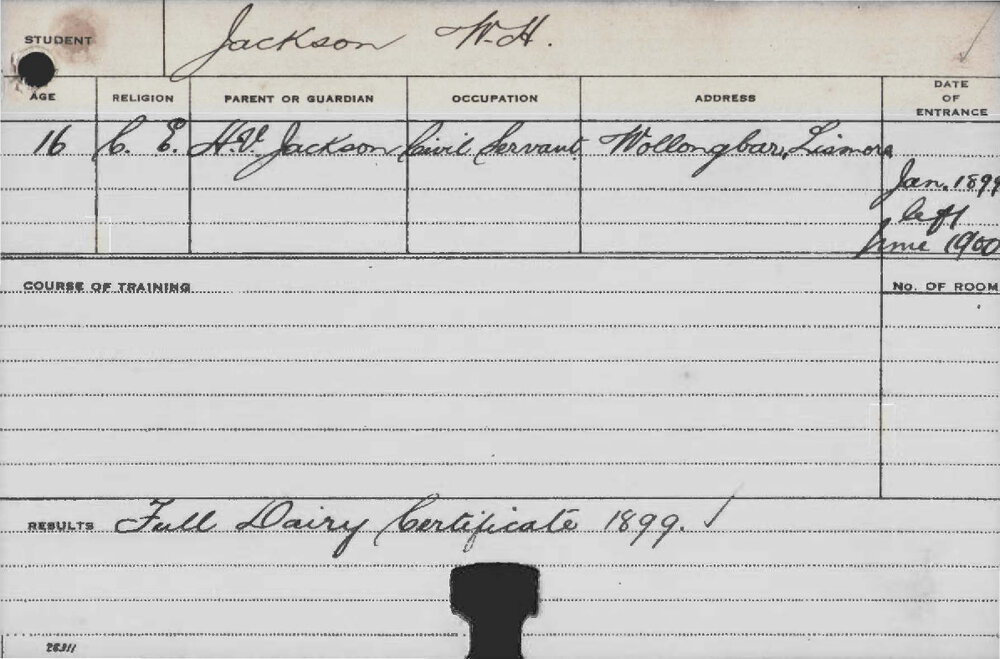 STUDENT Jackson W.H.
AGE RELIGION PARENT OR GUARDIAN OCCUPATION ADDRESS DATE OF ENTRANCE
16 C. E. H.V. Jackson Civil Servant Wollongbar, Lismore
Jan. 1899
left
June 1900
COURSE OF TRAINING No. OF ROOM
RESULTS Full Dairy Certificate 1899.